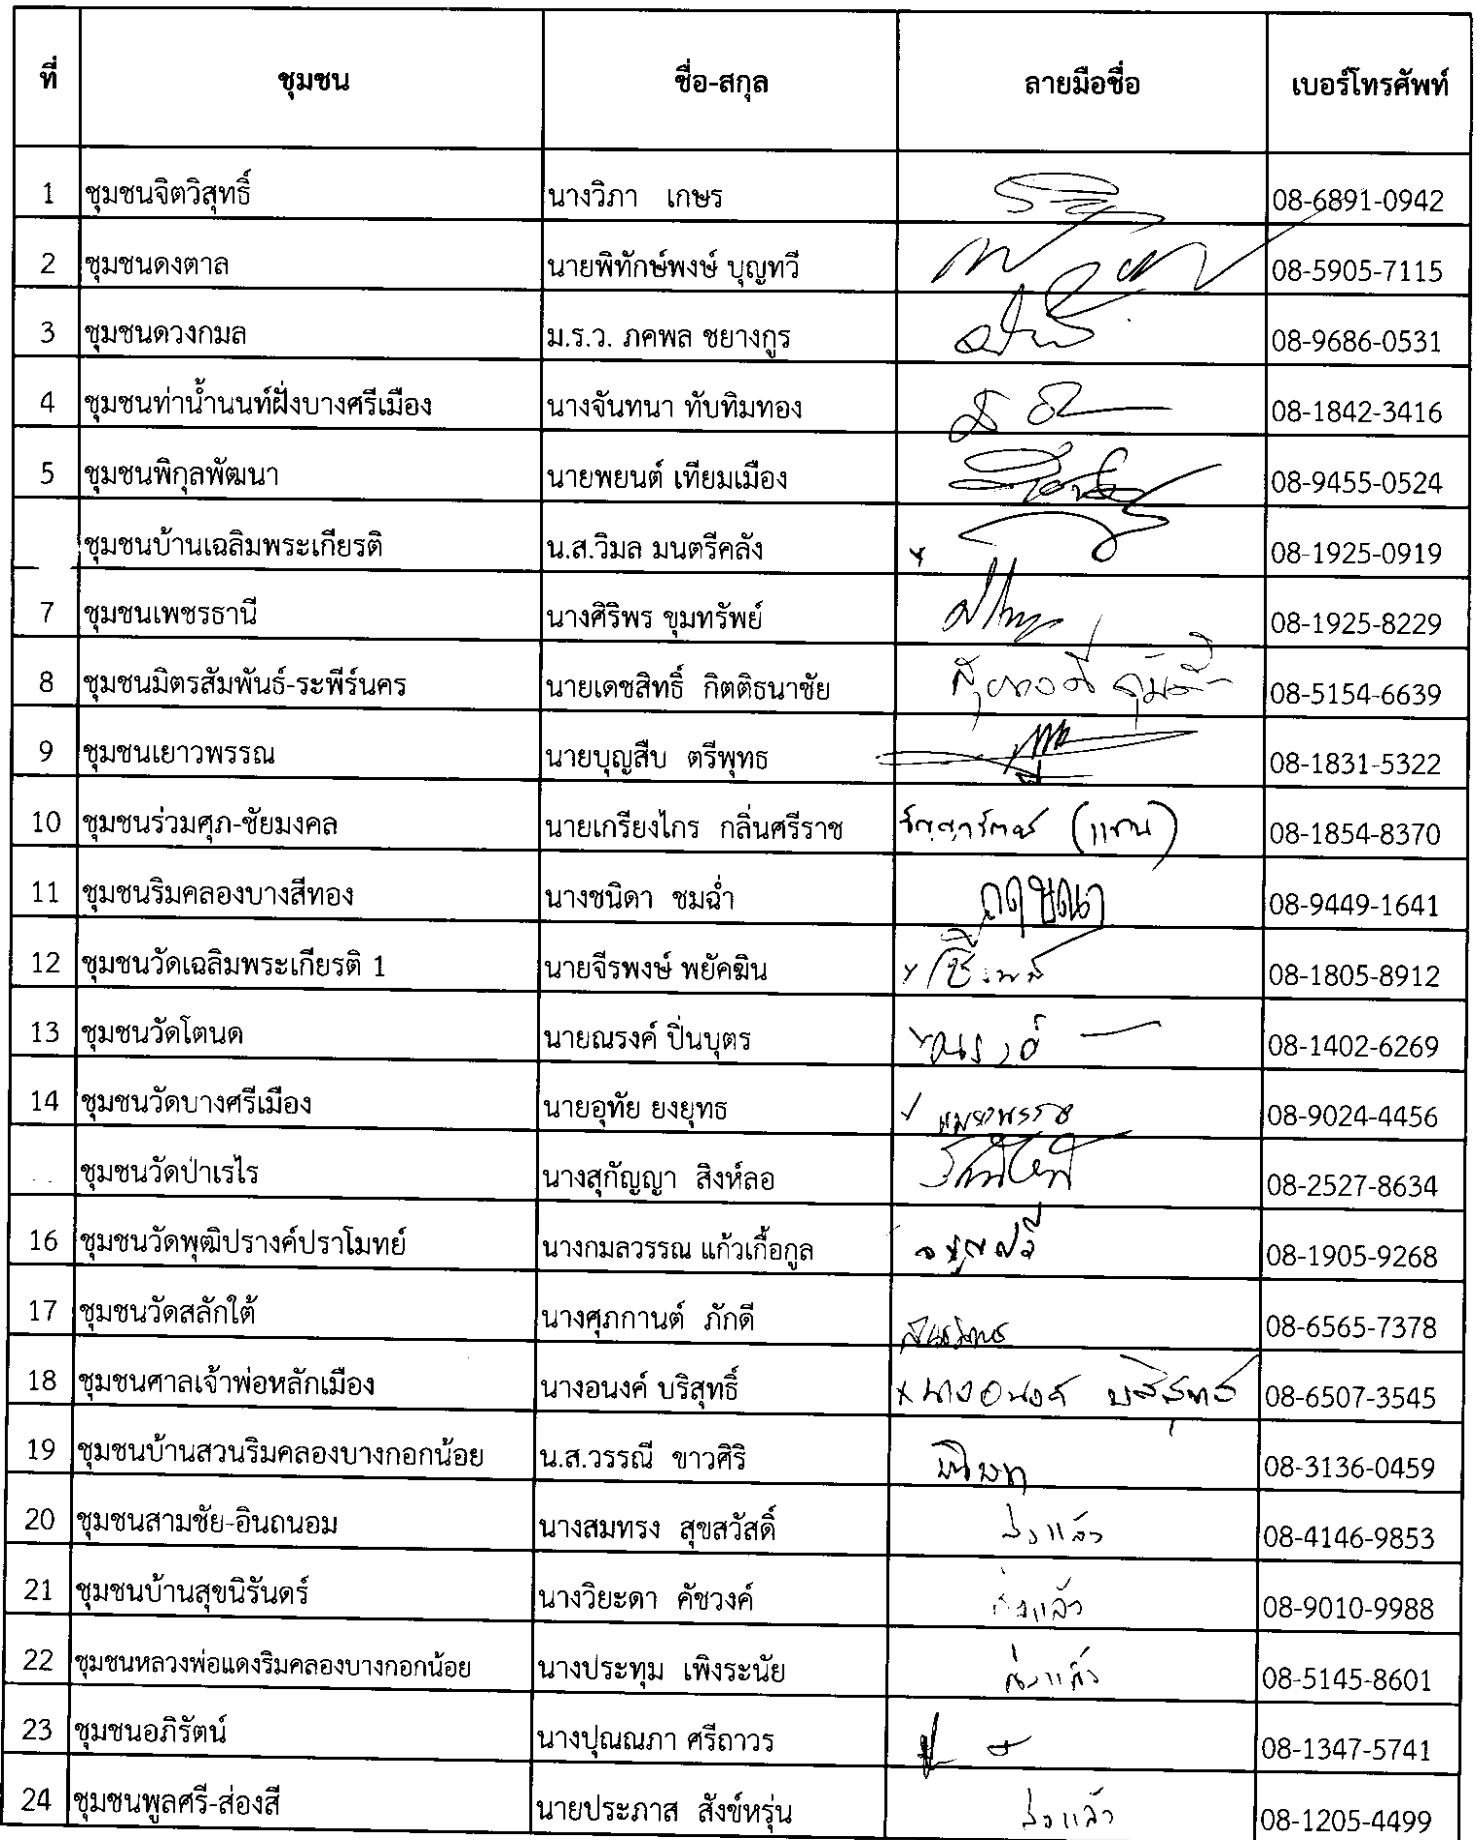 ที่ ชุมชน ชื่อ-สกุล ลายมือชื่อ เบอร์โทรศัพท์
1 ชุมชนจิตวิสุทธิ์ นางวิภา เกษร 08-6891-0942
2 ชุมชนดงตาล นายพิทักษ์พงษ์ บุญทวี 08-5905-7115
3 ชุมชนดวงกมล ม.ร.ว. ภคพล ชยางกูร 08-9686-0531
4 ชุมชนท่าน้ำนนท์ฝั่งบางศรีเมือง นางจันทนา ทับทิมทอง 08-1842-3416
5 ชุมชนพิกุลพัฒนา นายพยนต์ เทียมเมือง 08-9455-0524
ชุมชนบ้านเฉลิมพระเกียรติ น.ส.วิมล มนตรีคลัง 08-1925-0919
7 ชุมชนเพชรธานี นางศิริพร ขุมทรัพย์ 08-1925-8229
8 ชุมชนมิตรสัมพันธ์-ระพีร์นคร นายเดชสิทธิ์ กิตติธนาชัย 08-5154-6639
9 ชุมชนเยาวพรรณ นายบุญสืบ ตรีพุทธ 08-1831-5322
10 ชุมชนร่วมศุภ-ชัยมงคล นายเกรียงไกร กลิ่นศรีราช (แทน) 08-1854-8370
11 ชุมชนริมคลองบางสีทอง นางชนิดา ชมฉ่ำ 08-9449-1641
12 ชุมชนวัดเฉลิมพระเกียรติ 1 นายจีรพงษ์ พยัคฆิน 08-1805-8912
13 ชุมชนวัดโตนด นายณรงค์ ปิ่นบุตร ณรงค์ 08-1402-6269
14 ชุมชนวัดบางศรีเมือง นายอุทัย ยงยุทธ 08-9024-4456
ชุมชนวัดป่าเรไร นางสุกัญญา สิงห์ลอ 08-2527-8634
16 ชุมชนวัดพุฒิปรางค์ปราโมทย์ นางกมลวรรณ แก้วเกื้อกูล 08-1905-9268
17 ชุมชนวัดสลักใต้ นางศุภกานต์ ภักดี 08-6565-7378
18 ชุมชนศาลเจ้าพ่อหลักเมือง นางอนงค์ บริสุทธิ์ นางอนงค์ บริสุทธิ์ 08-6507-3545
19 ชุมชนบ้านสวนริมคลองบางกอกน้อย น.ส.วรรณี ขาวศิริ 08-3136-0459
20 ชุมชนสามชัย-อินถนอม นางสมทรง สุขสวัสดิ์ ส่งแล้ว 08-4146-9853
21 ชุมชนบ้านสุขนิรันดร์ นางวิยะดา คัชวงค์ ส่งแล้ว 08-9010-9988
22 ชุมชนหลวงพ่อแดงริมคลองบางกอกน้อย นางประทุม เพิงระนัย ส่งแล้ว 08-5145-8601
23 ชุมชนอภิรัตน์ นางปุณณภา ศรีถาวร 08-1347-5741
24 ชุมชนพูลศรี-ส่องสี นายประภาส สังข์หรุ่น ส่งแล้ว 08-1205-4499